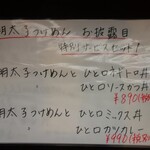 明太子つけめん お披露目
特別サービスセット!
明太子つけめんと ひと口ネギトロ丼
〃 ひと口ソースカツ丼
¥890(税別)
明太子つけめんと ひと口ミックス丼
〃 ひと口カツカレー
¥990(税別)